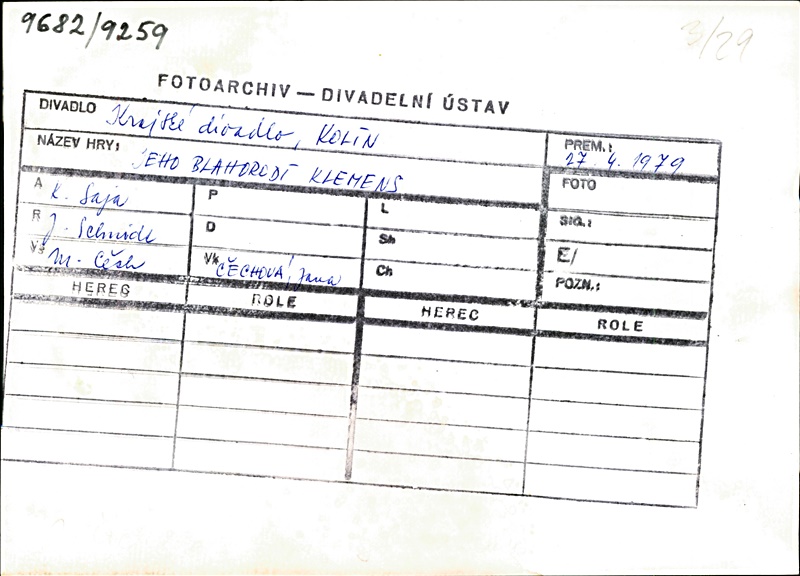 9682/9259
3/29
FOTOARCHIV — DIVADELNÍ ÚSTAV
DIVADLO Krajské divadlo, KOLÍN
PREM.: 27. 4. 1979
NÁZEV HRY: JEHO BLAHORODÍ KLEMENS
FOTO
A K. Saja
P
L
SIG.:
R J. Schmidt
D
Sh
E/
Vš M. Čech
Vk ČECHOVÁ, Jana
Ch
POZN.:
HEREC ROLE HEREC ROLE